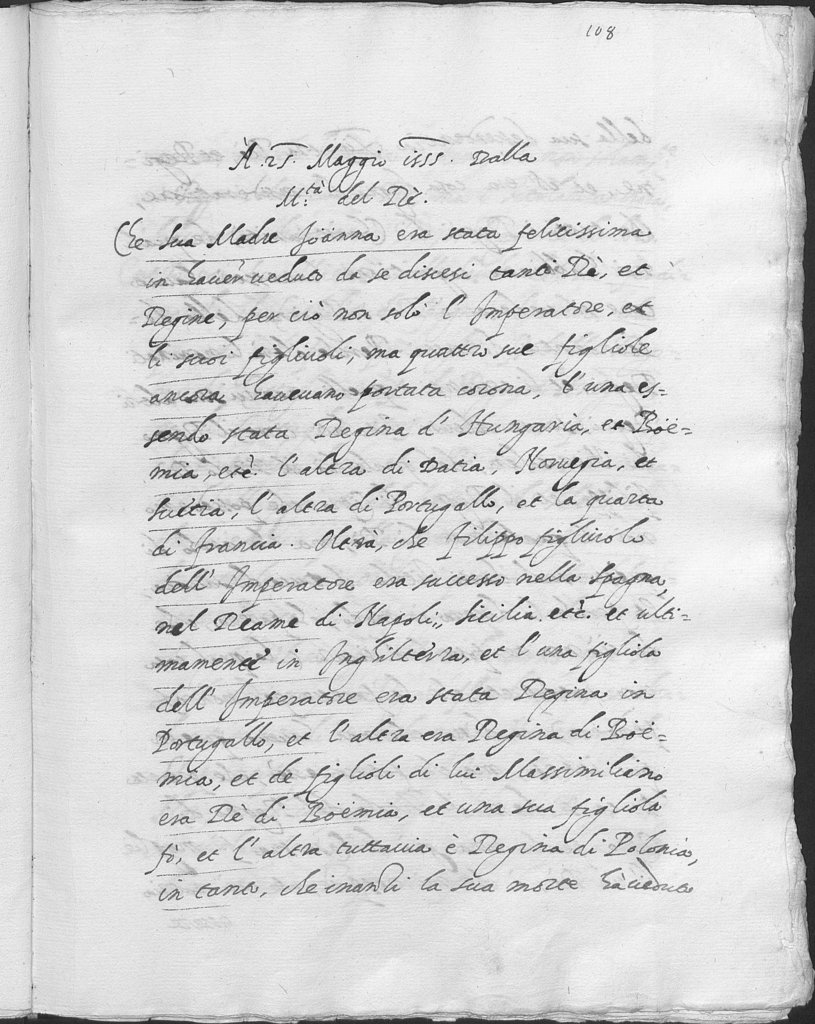 108
À 25. Maggio 1555. Dalla
M.tà del Rè.
Che sua Madre Joänna era stata felicissima
in haver veduto da se discesi tanti Rè, et
Regine, per ciò non solo l' Imperatore, et
li suoi figliuoli, ma quattro sue figliole
ancora havevano portata corona, l'una es-
sendo stata Regina d' Hungaria, et Böe-
mia, etc. l'altra di Datia, Norvegia, et
Suetia, l'altra di Portugallo, et la quarta
di Francia. Oltrà, che Filippo figliuolo
dell' Imperatore era successo nella Spagna,
nel Reame di Napoli, Sicilia etc. et ulti-
mamente in Inghilterra, et l'una figliola
dell' Imperatore era stata Regina in
Portugallo, et l'altra era Regina di Böe-
mia, et de figlioli di lui Massimiliano
era Rè di Böemia, et una sua figliola
fò, et l'altra tuttavia è Regina di Polonia,
in tanto, che inanzi la sua morte hà veduto